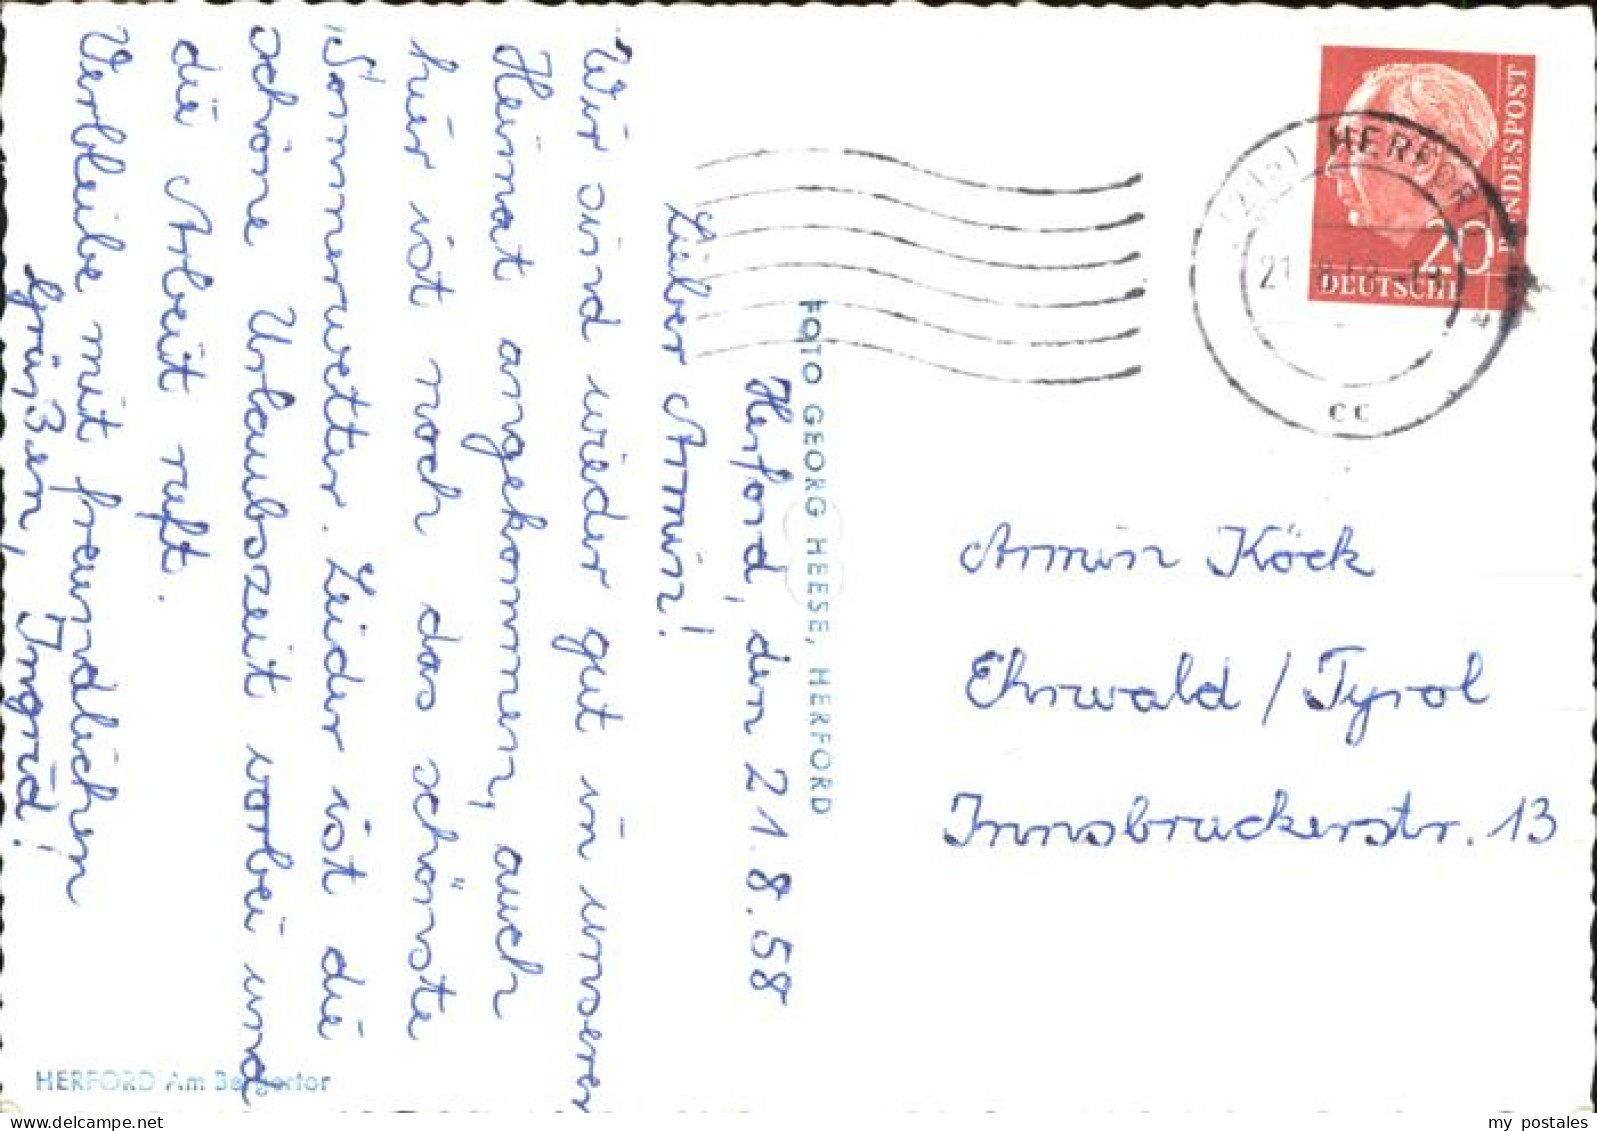 Herford, den 21.8.58
Lieber Armin!
Wir sind wieder gut in unserer
Heimat angekommen, auch
hier ist noch das schönste
Sommerwetter. Leider ist die
schöne Urlaubszeit vorbei und
die Arbeit ruft.
Verbleibe mit freundlichen
Grüßen, Ingrid!
FOTO GEORG HEESE, HERFORD
HERFORD Am Bergertor
HERFORD
cc
20
DEUTSCHE
BUNDESPOST
Armin Köck
Ehrwald / Tyrol
Innsbruckerstr. 13
my postales